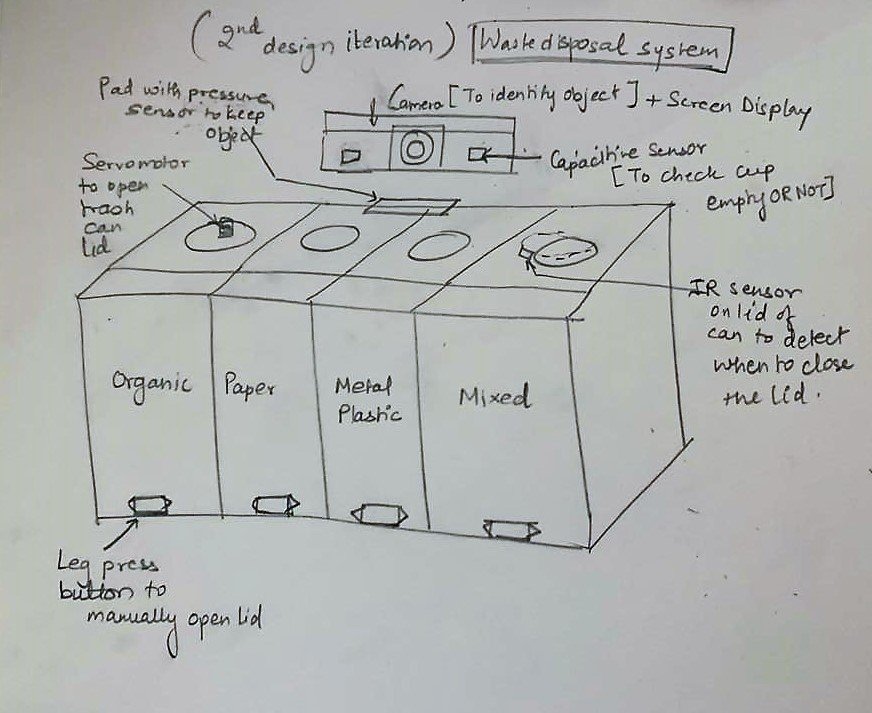 (2nd design iteration)
Waste disposal system
Pad with pressure
sensor to keep
object
Camera [To identity object] + Screen Display
Capacitive Sensor
[To check cup
empty OR NOT]
Servomotor
to open
trash
can
lid
IR sensor
on lid of
can to detect
when to close
the lid.
Organic
Paper
Metal
Plastic
Mixed
Leg press
button to
manually open lid